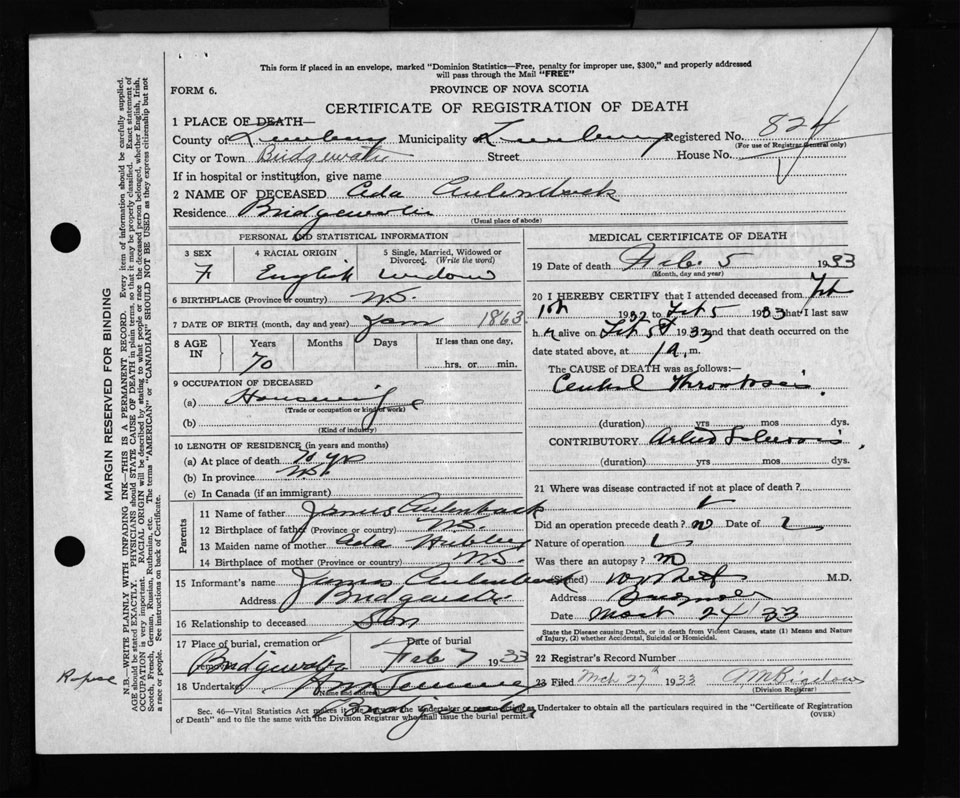 This form if placed in an envelope, marked "Dominion Statistics—Free, penalty for improper use, $300," and properly addressed
will pass through the Mail "FREE"
FORM 6.
PROVINCE OF NOVA SCOTIA
CERTIFICATE OF REGISTRATION OF DEATH
1 PLACE OF DEATH—
County of Lunenburg Municipality of Lunenburg Registered No. 824
(For use of Registrar General only)
City or Town Bridgewater Street House No.
If in hospital or institution, give name
2 NAME OF DECEASED Ada Aulenback
Residence Bridgewater
(Usual place of abode)
PERSONAL AND STATISTICAL INFORMATION
3 SEX 4 RACIAL ORIGIN 5 Single, Married, Widowed or Divorced. (Write the word)
F English widow
6 BIRTHPLACE (Province or country) N.S.
7 DATE OF BIRTH (month, day and year) Jan 1863
8 AGE IN Years Months Days If less than one day,
70 hrs. or min.
9 OCCUPATION OF DECEASED
(a) Housewife
(Trade or occupation or kind of work)
(b)
(Kind of industry)
10 LENGTH OF RESIDENCE (in years and months)
(a) At place of death 70 yrs
(b) In province N.S.
(c) In Canada (if an immigrant)
Parents
11 Name of father James Aulenback
12 Birthplace of father (Province or country) N.S.
13 Maiden name of mother Ada Hubley
14 Birthplace of mother (Province or country) N.S.
15 Informant's name James Aulenback
Address Bridgewater
16 Relationship to deceased Son
17 Place of burial, cremation or removal Date of burial
Bridgewater Feb 7 1933
18 Undertaker
(Name and address)
Bridgewater
MEDICAL CERTIFICATE OF DEATH
19 Date of death Feb. 5 1933
(Month, day and year)
20 I HEREBY CERTIFY that I attended deceased from Feb
1932 to Feb 5 1933 that I last saw
h r alive on Feb 5 1933 and that death occurred on
date stated above, at 1 a. m.
The CAUSE of DEATH was as follows:—
Thrombosis
(duration) yrs mos dys.
CONTRIBUTORY
(duration) yrs mos dys.
21 Where was disease contracted if not at place of death?
Did an operation precede death? no Date of
Nature of operation
Was there an autopsy? no
(Signed) M.D.
Address
Date 24/33
State the Disease causing Death, or in death from Violent Causes, state (1) Means and Nature
of Injury, (2) whether Accidental, Suicidal or Homicidal.
22 Registrar's Record Number
23 Filed Mch 27th 1933 A M Bigelow
(Division Registrar)
Sec. 46—Vital Statistics Act makes it the duty of the Undertaker or person acting as Undertaker to obtain all the particulars required in the "Certificate of Registration
of Death" and to file the same with the Division Registrar who shall issue the burial permit.
(OVER)
MARGIN RESERVED FOR BINDING
N.B.—WRITE PLAINLY WITH UNFADING INK—THIS IS A PERMANENT RECORD. Every item of information should be carefully supplied.
AGE should be stated EXACTLY. PHYSICIANS should STATE CAUSE OF DEATH in plain terms, so that it may be properly classified. Exact statement of
OCCUPATION is very important. RACIAL ORIGIN will be described by stating to what people or race the deceased person belonged, whether English, Irish,
Scotch, French, German, Russian, Ruthenian, etc. The terms "AMERICAN" or "CANADIAN" SHOULD NOT BE USED as they express citizenship but not
a race or people. See instructions on back of Certificate.